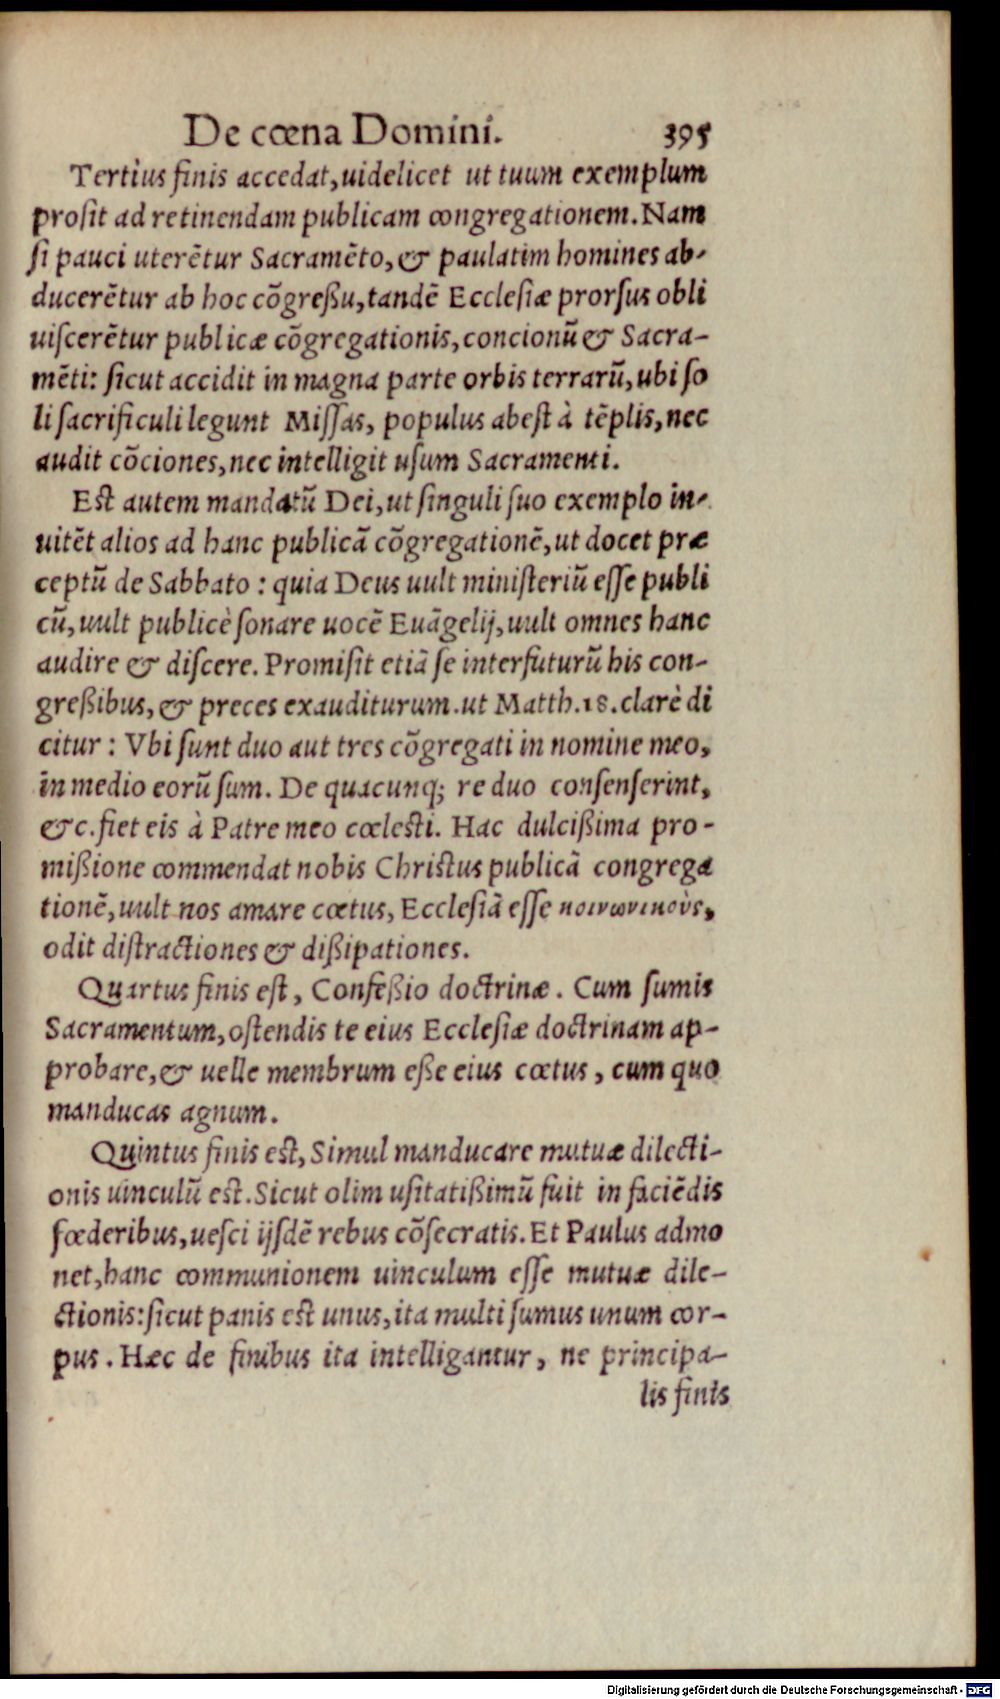 De cœna Domini. 395
Tertius finis accedat, uidelicet ut tuum exemplum
prosit ad retinendam publicam congregationem. Nam
si pauci uterētur Sacramēto, & paulatim homines ab-
ducerētur ab hoc cōgreßu, tandē Ecclesiæ prorsus obli
uiscerētur publicæ cōgregationis, concionū & Sacra-
mēti: sicut accidit in magna parte orbis terrarū, ubi so
li sacrificuli legunt Missas, populus abest à tēplis, nec
audit cōciones, nec intelligit usum Sacramenti.
Est autem mandatū Dei, ut singuli suo exemplo in-
uitēt alios ad hanc publicā cōgregationē, ut docet præ
ceptū de Sabbato : quia Deus uult ministeriū esse publi
cū, uult publicè sonare uocē Euāgelij, uult omnes hanc
audire & discere. Promisit etiā se interfuturū his con-
greßibus, & preces exauditurum. ut Matth. 18. clarè di
citur : Vbi sunt duo aut tres cōgregati in nomine meo,
in medio eorū sum. De quacunq; re duo consenserint,
&c. fiet eis à Patre meo cœlesti. Hac dulcißima pro-
mißione commendat nobis Christus publicā congrega
tionē, uult nos amare cœtus, Ecclesiā esse κοινωνικοὺς,
odit distractiones & dißipationes.
Quartus finis est, Confeßio doctrinæ. Cum sumis
Sacramentum, ostendis te eius Ecclesiæ doctrinam ap-
probare, & uelle membrum eße eius cœtus, cum quo
manducas agnum.
Quintus finis est, Simul manducare mutuæ dilecti-
onis uinculū est. Sicut olim usitatißimū fuit in faciēdis
fœderibus, uesci ijsdē rebus cōsecratis. Et Paulus admo
net, hanc communionem uinculum esse mutuæ dile-
ctionis: sicut panis est unus, ita multi sumus unum cor-
pus. Hæc de finibus ita intelligantur, ne principa-
lis finis
Digitalisierung gefördert durch die Deutsche Forschungsgemeinschaft - DFG